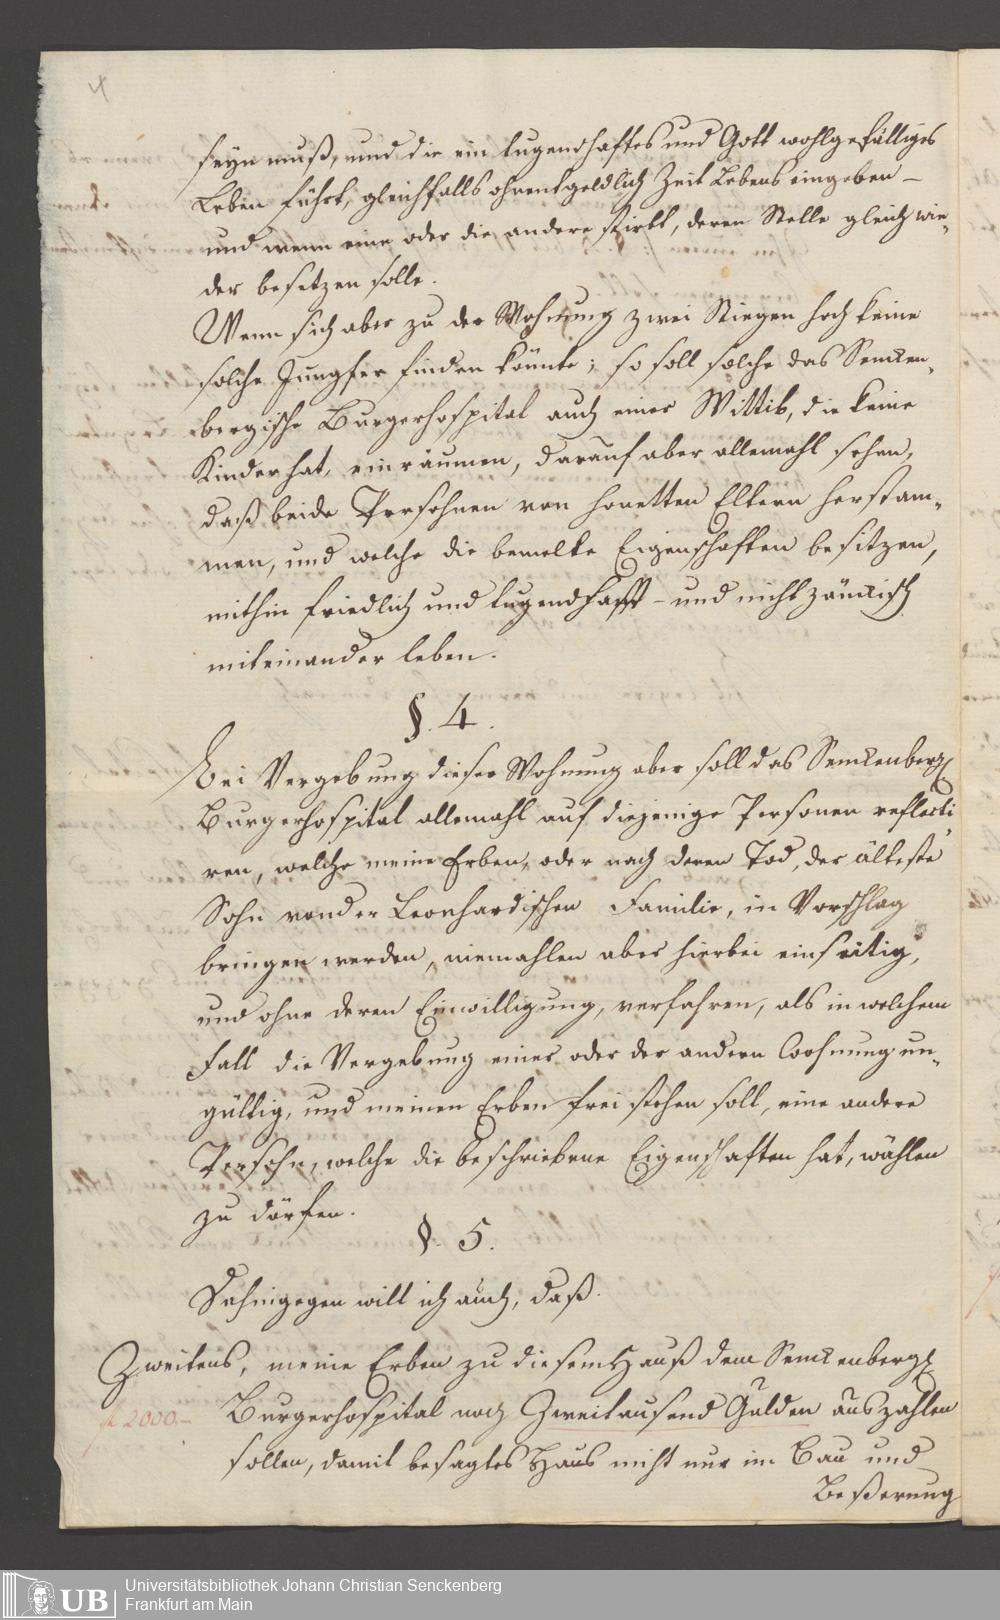 4
seyn muß, und die ein tugendhaftes und Gott wohlgefälliges
Leben führt, gleichfalls ohnentgeldlich Zeit Lebens eingeben –
und wenn eine oder die andere stirbt, deren Stelle gleich wie-
der besetzen solle.
Wenn sich aber zu der Wohnung zwei Stiegen hoch keine
solche Jungfer finden könnte; so soll solche das Senken-
bergische Burgerhospital auch einer Wittib, die keine
Kinder hat, einräumen, darauf aber allemahl sehen,
daß beide Persohnen von honetten Eltern herstam-
men, und welche die bemelte Eigenschaften besitzen,
mithin friedlich und tugendhafft – und nicht zänckisch
miteinander leben.
§. 4.
Bei Vergebung dieser Wohnung aber soll das Senkenberg.
Burgerhospital allemahl auf diejenige Personen reflecti
ren, welche meine Erben, oder nach deren Tod, der älteste
Sohn von der Leonhardischen Familie, in Vorschlag
bringen werden, niemahlen aber hierbei einseitig,
und ohne deren Einwilligung, verfahren, als in welchem
Fall die Vergebung einer oder der andern Wohnung un-
gültig, und meinen Erben frei stehen soll, eine andere
Persohn, welche die beschriebene Eigenschaften hat, wählen
zu dörfen.
§. 5.
Dahingegen will ich auch, daß.
Zweitens, meine Erben zu diesem Hauß dem Senkenberg.
f 2000.– Burgerhospital noch Zweitausend Gulden auszahlen
sollen, damit besagtes Haus nicht nur im Bau und
Beßerung
UB
Universitätsbibliothek Johann Christian Senckenberg
Frankfurt am Main